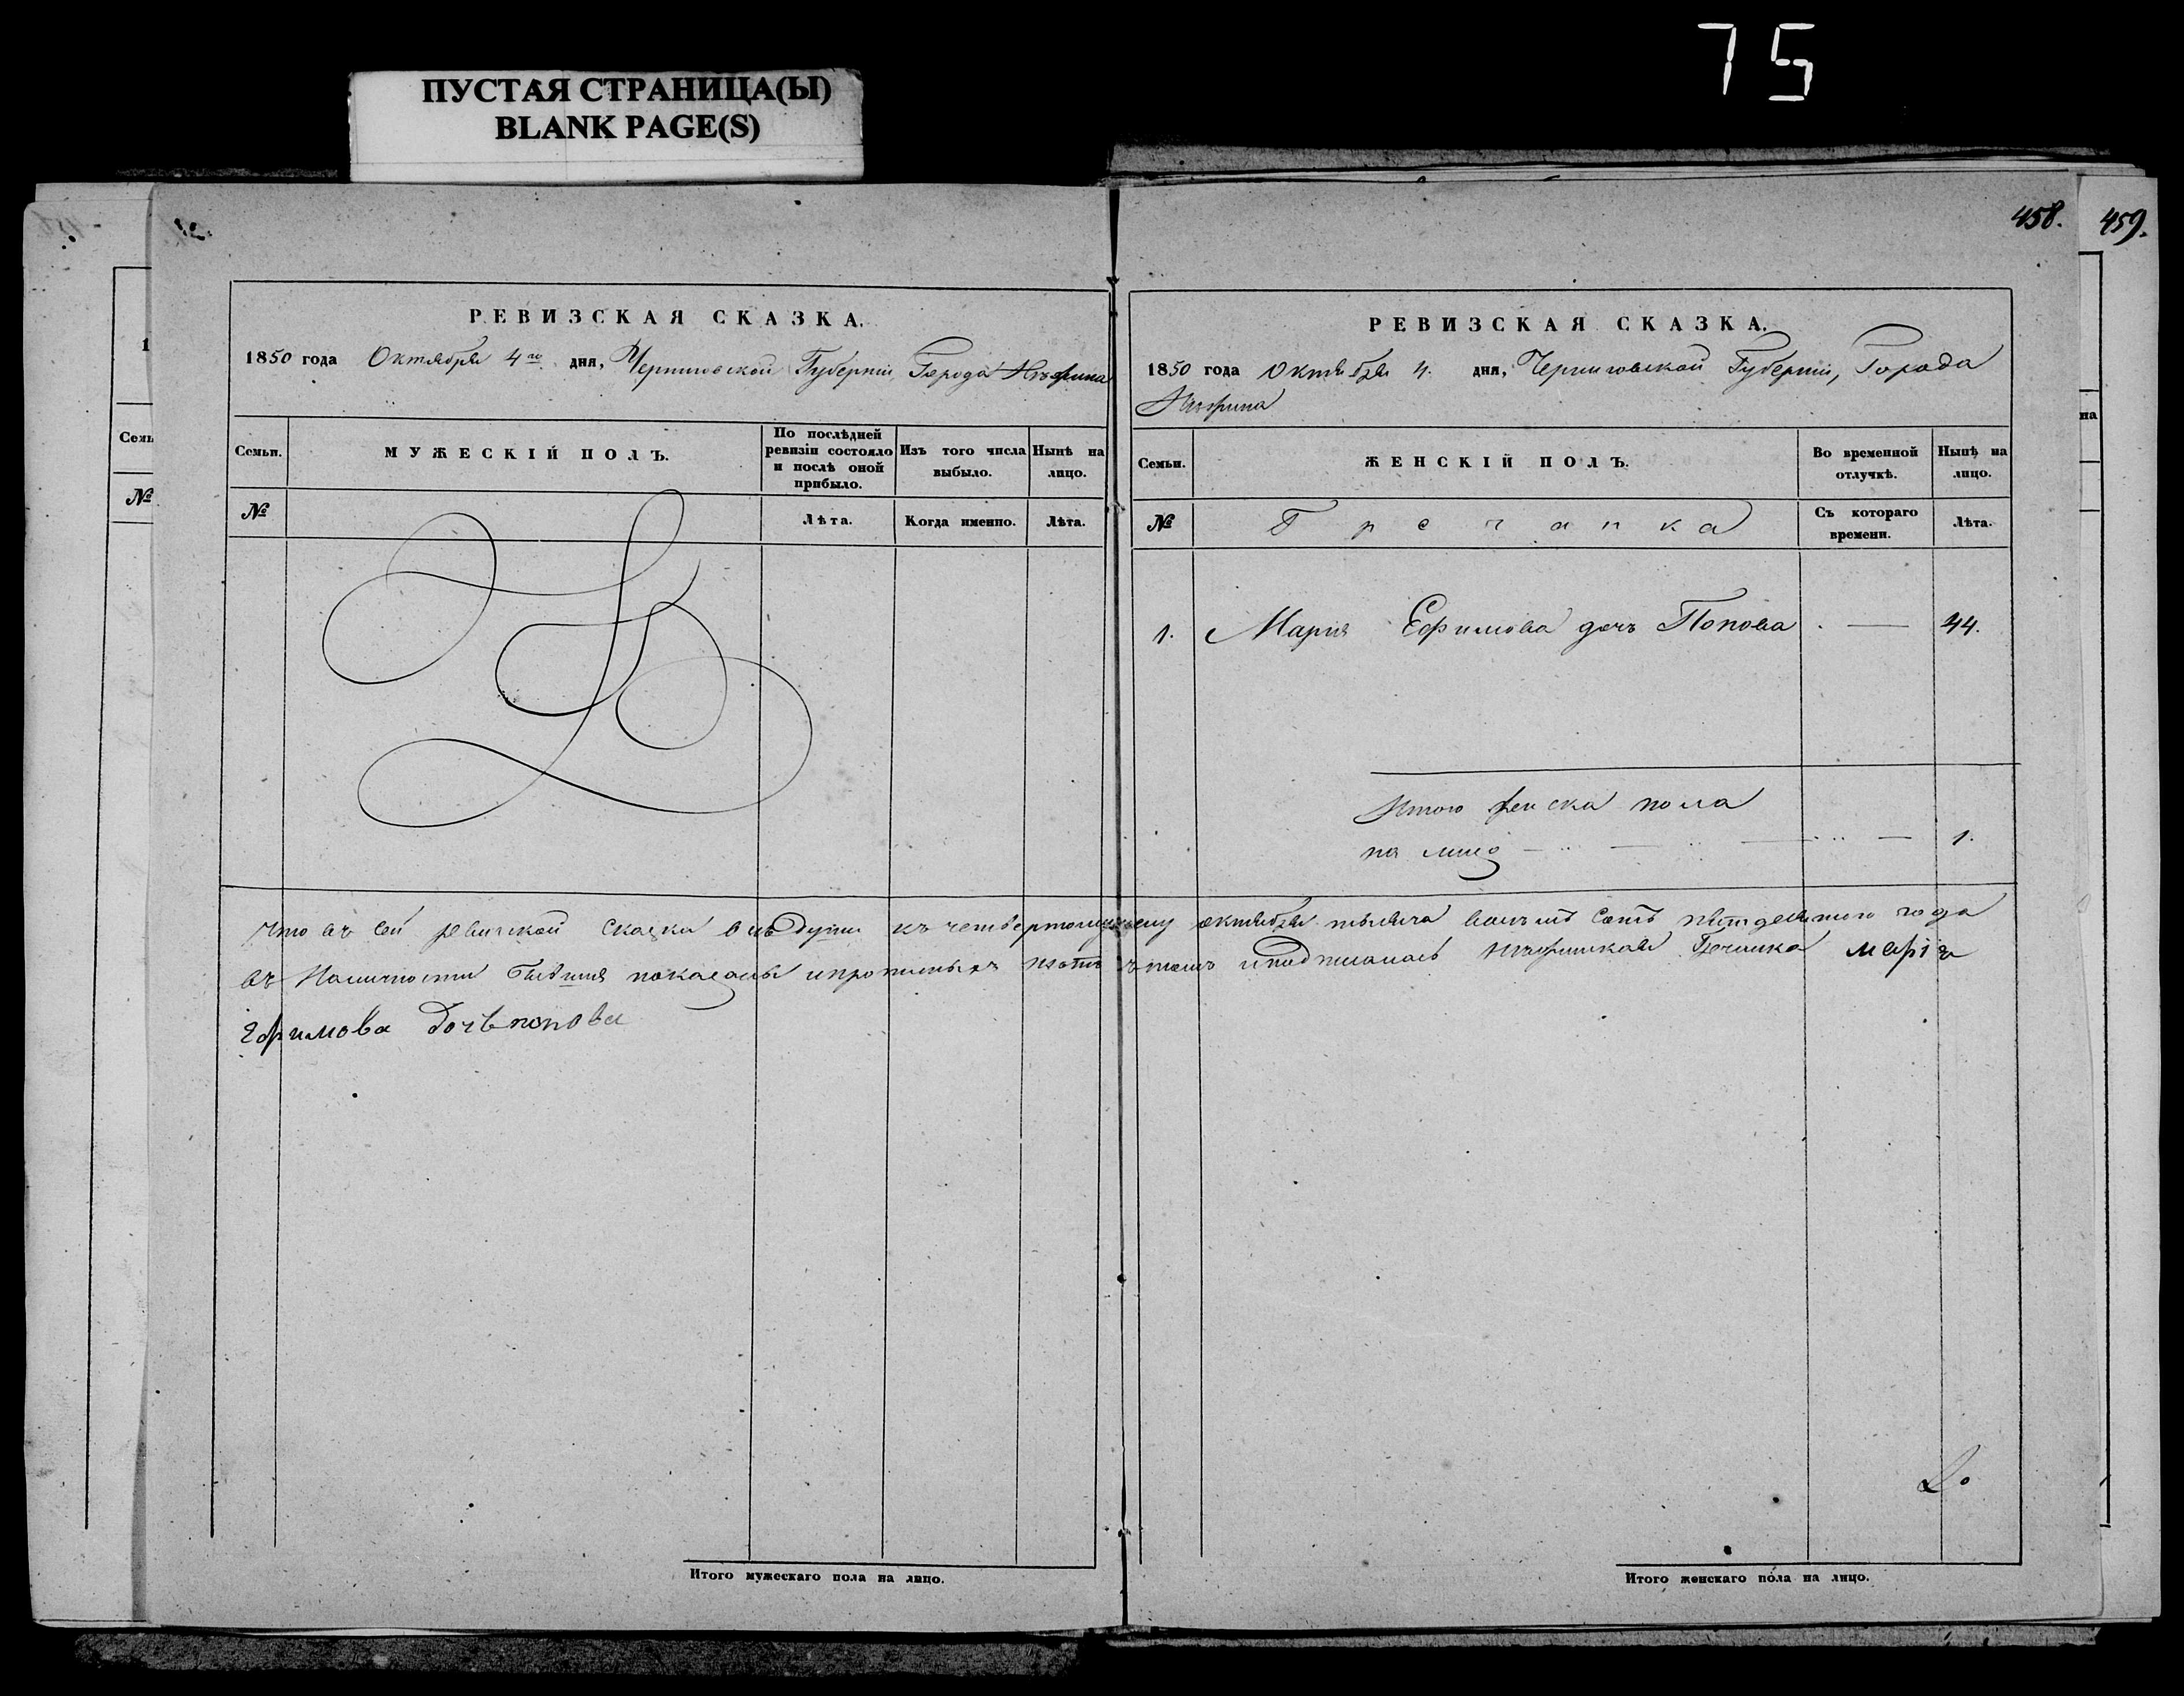 75
ПУСТАЯ СТРАНИЦА(Ы)
BLANK PAGE(S)
458.
459.
РЕВИЗСКАЯ СКАЗКА.
1850 года Октября 4го дня, Черниговской Губерніи Города Нѣжина
Семьи.
МУЖЕСКІЙ ПОЛЪ.
По послѣдней ревизіи состояло и послѣ оной прибыло.
Изъ того числа выбыло.
Нынѣ на лицо.
№
Лѣта.
Когда именно.
Лѣта.
РЕВИЗСКАЯ СКАЗКА.
1850 года Октября 4. дня, Черниговской Губерніи, Города
Нѣжина
Семьи.
ЖЕНСКІЙ ПОЛЪ.
Во временной отлучкѣ.
Нынѣ на лицо.
№
Гречанка
Съ котораго времени.
Лѣта.
1. Марія Ефимова дочь Попова . — 44.
Итого женска пола
на лицо — 1.
Что въ сей ревизской сказки всѣ души къ четвертому октября тысяча восѣмъ сотъ пятдесятого года
въ Наличности бывшія показаны и прописныхъ нѣтъ въ томъ и подписалась нѣжинская Гречанка марія
Ефимова дочь попова
Итого мужескаго пола на лицо.
Итого женскаго пола на лицо.